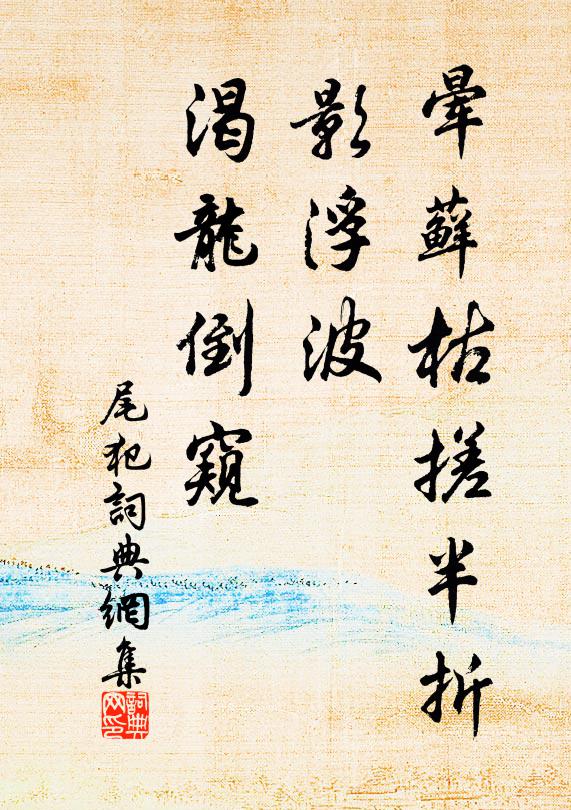 暈蘚枯搓半折
影浮波
渴龍倒窺
尾犯詞典網集
詞典
网印